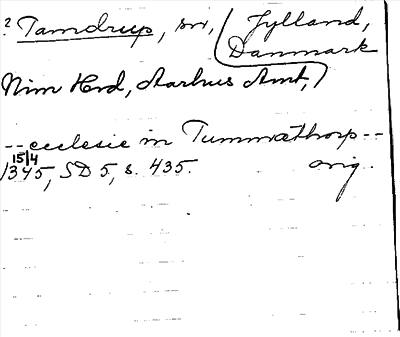 ? Tamdrup, sn, Jylland,
Danmark
Nim Hrd, Aarhus Amt,
-- ecclesie in Tummathorp --
15/4
1345, SD 5, s. 435. orig.